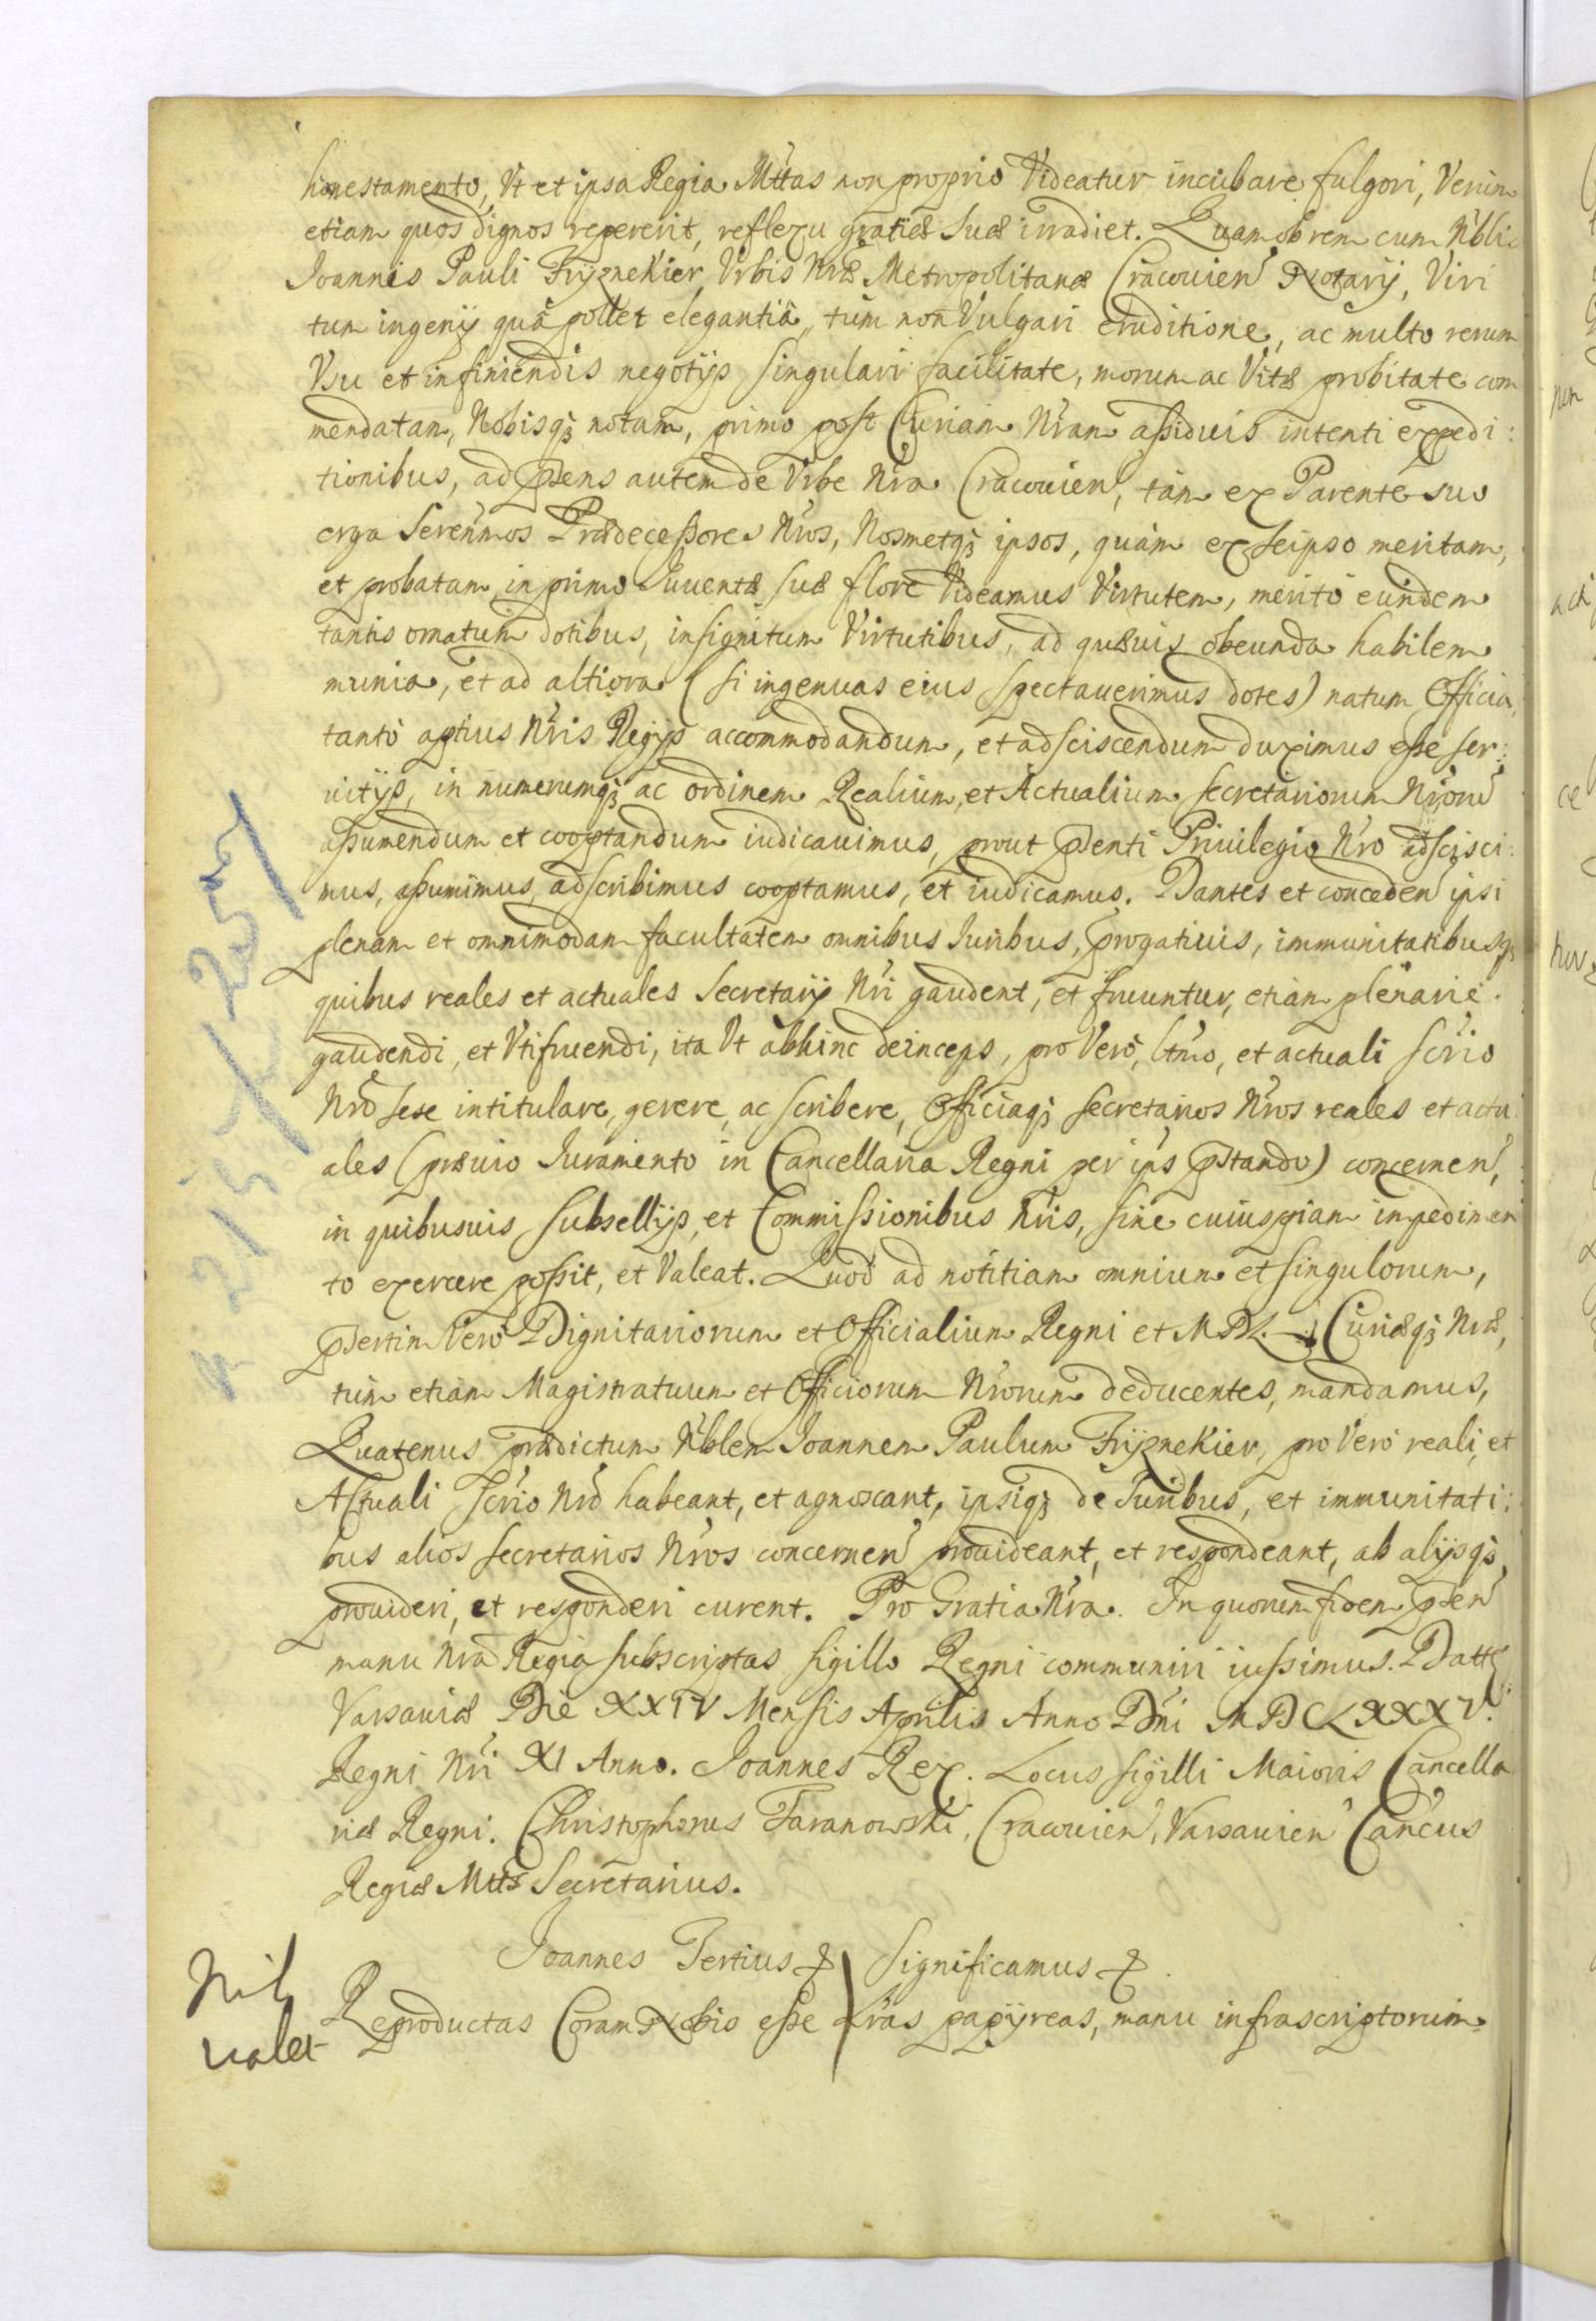 honestamento, Vt et ipsa Regia Mttas non proprio Videatur incubare fulgori, Verum
etiam quos dignos repererit, reflexu gratiæ suæ irradiet. Quamobrem cum Nblis
Joannis Pauli Frÿznekier, Vrbis Nræ Metropolitanæ Cracouien Notarij, Viri
tum ingenij quâ pollet elegantiâ, tùm non Vulgari eruditione, ac multo rerum
Vsu et in finiendis negotijs singulari facilitate, morum ac Vitæ probitate com
mendatam, Nobisq; notam, primo post Curiam Nram assiduis intenti expedi:
tionibus, ad præsens autem de Vrbe Nra Cracouien, tàm ex Parente suo
erga Serenmos Prædecessores Nros, Nosmetq; ipsos, quàm ex seipso meritam,
et probatam in primo Iuuentæ suæ flore Videamus Virtutem, meritò eundem
tantis ornatum dotibus, insignitum Virtutibus, ad quæuis obeunda habilem
munia, et ad altiora (si ingenuas eius spectauerimus dotes) natum Officia,
tantò aptius Nris Regijs accommodandum, et adsciscendum duximus esse ser:
uitijs, in numerumq; ac ordinem Realium, et Actualium Secretariorum Nrorū
assumendum et cooptandum iudicauimus, prout præsenti Priuilegio Nro adscisci:
mus, assumimus, adscribimus cooptamus, et iudicamus. Dantes et conceden ipsi
plenam et omnimodam facultatem omnibus Iuribus, prærogatiuis, immunitatibusq;
quibus reales et actuales Secretarij Nri gaudent, et fruuntur, etiam plenariè
gaudendi, et Vtifruendi, ita Vt abhinc deinceps, pro Verò, ltmo, et actuali scrio
Nro sese intitulare, gerere, ac scribere, Officiaq; Secretarios Nros reales et actu
ales (præuio Iuramento in Cancellaria Regni per ips præstando) concernen,
in quibusuis subsellijs, et Commissionibus Nris, sine cuiuspiam impedimen
to exercere possit, et Valeat. Quod ad notitiam omnium et singulorum,
præsertim Verò Dignitariorum et Officialium Regni et M D L. Curiæq; Nræ,
tùm etiàm Magistratuum et Officiorum Nrorum deducentes, mandamus,
Quatenus prædictum Nblem Joannem Paulum Frÿznekier, pro Verò reali, et
Actuali Scrio Nro habeant, et agnoscant, ipsiq; de Iuribus, et immunitati:
bus alios Secretarios Nros concernen prouideant, et respondeant, ab alijsq;
prouideri, et responderi curent. Pro Gratia Nra. In quorum fidem præsen
manu Nra Regia subscriptas sigillo Regni communiri iussimus. Datt
Varsauiæ Die XXIV Mensis Aprilis Anno Dni MDCLXXXV.
Regni Nri XI Anno. Joannes Rex. Locus sigilli Maioris Cancella
riæ Regni. Christophorus Taranowski, Cracouien, Varsauien Cancus
Regiæ Mttis Secretarius.
Joannes Tertius & Significamus &
Nil Reproductas Coram Nobis esse Lras papÿreas, manu infrascriptorum
ualet